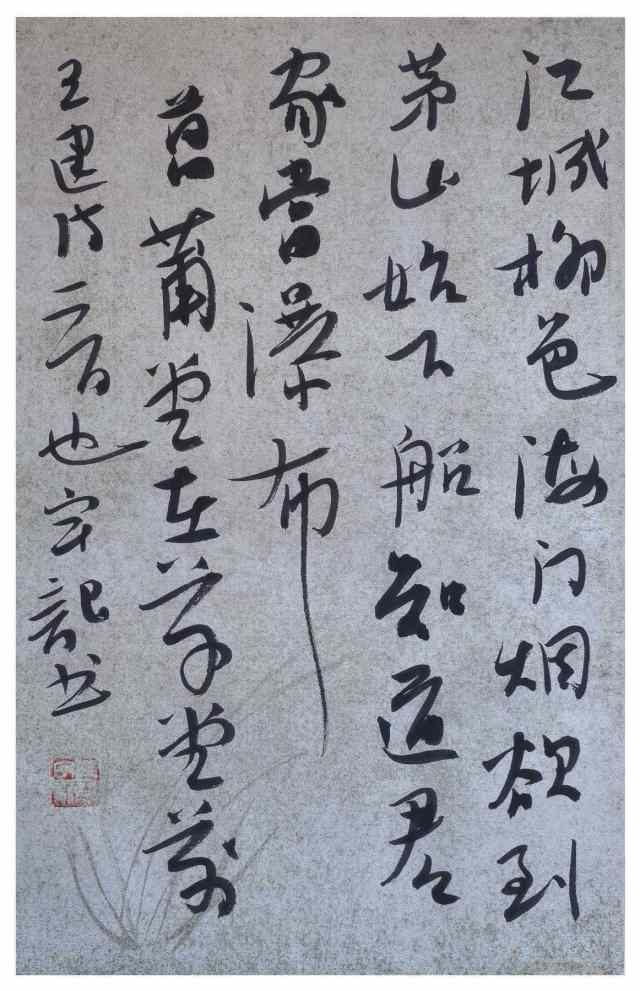 江城柳色海门烟欲到
茅山始下船知道君
家當瀑布
菖蒲堂在草堂前
王建诗一首也 记书